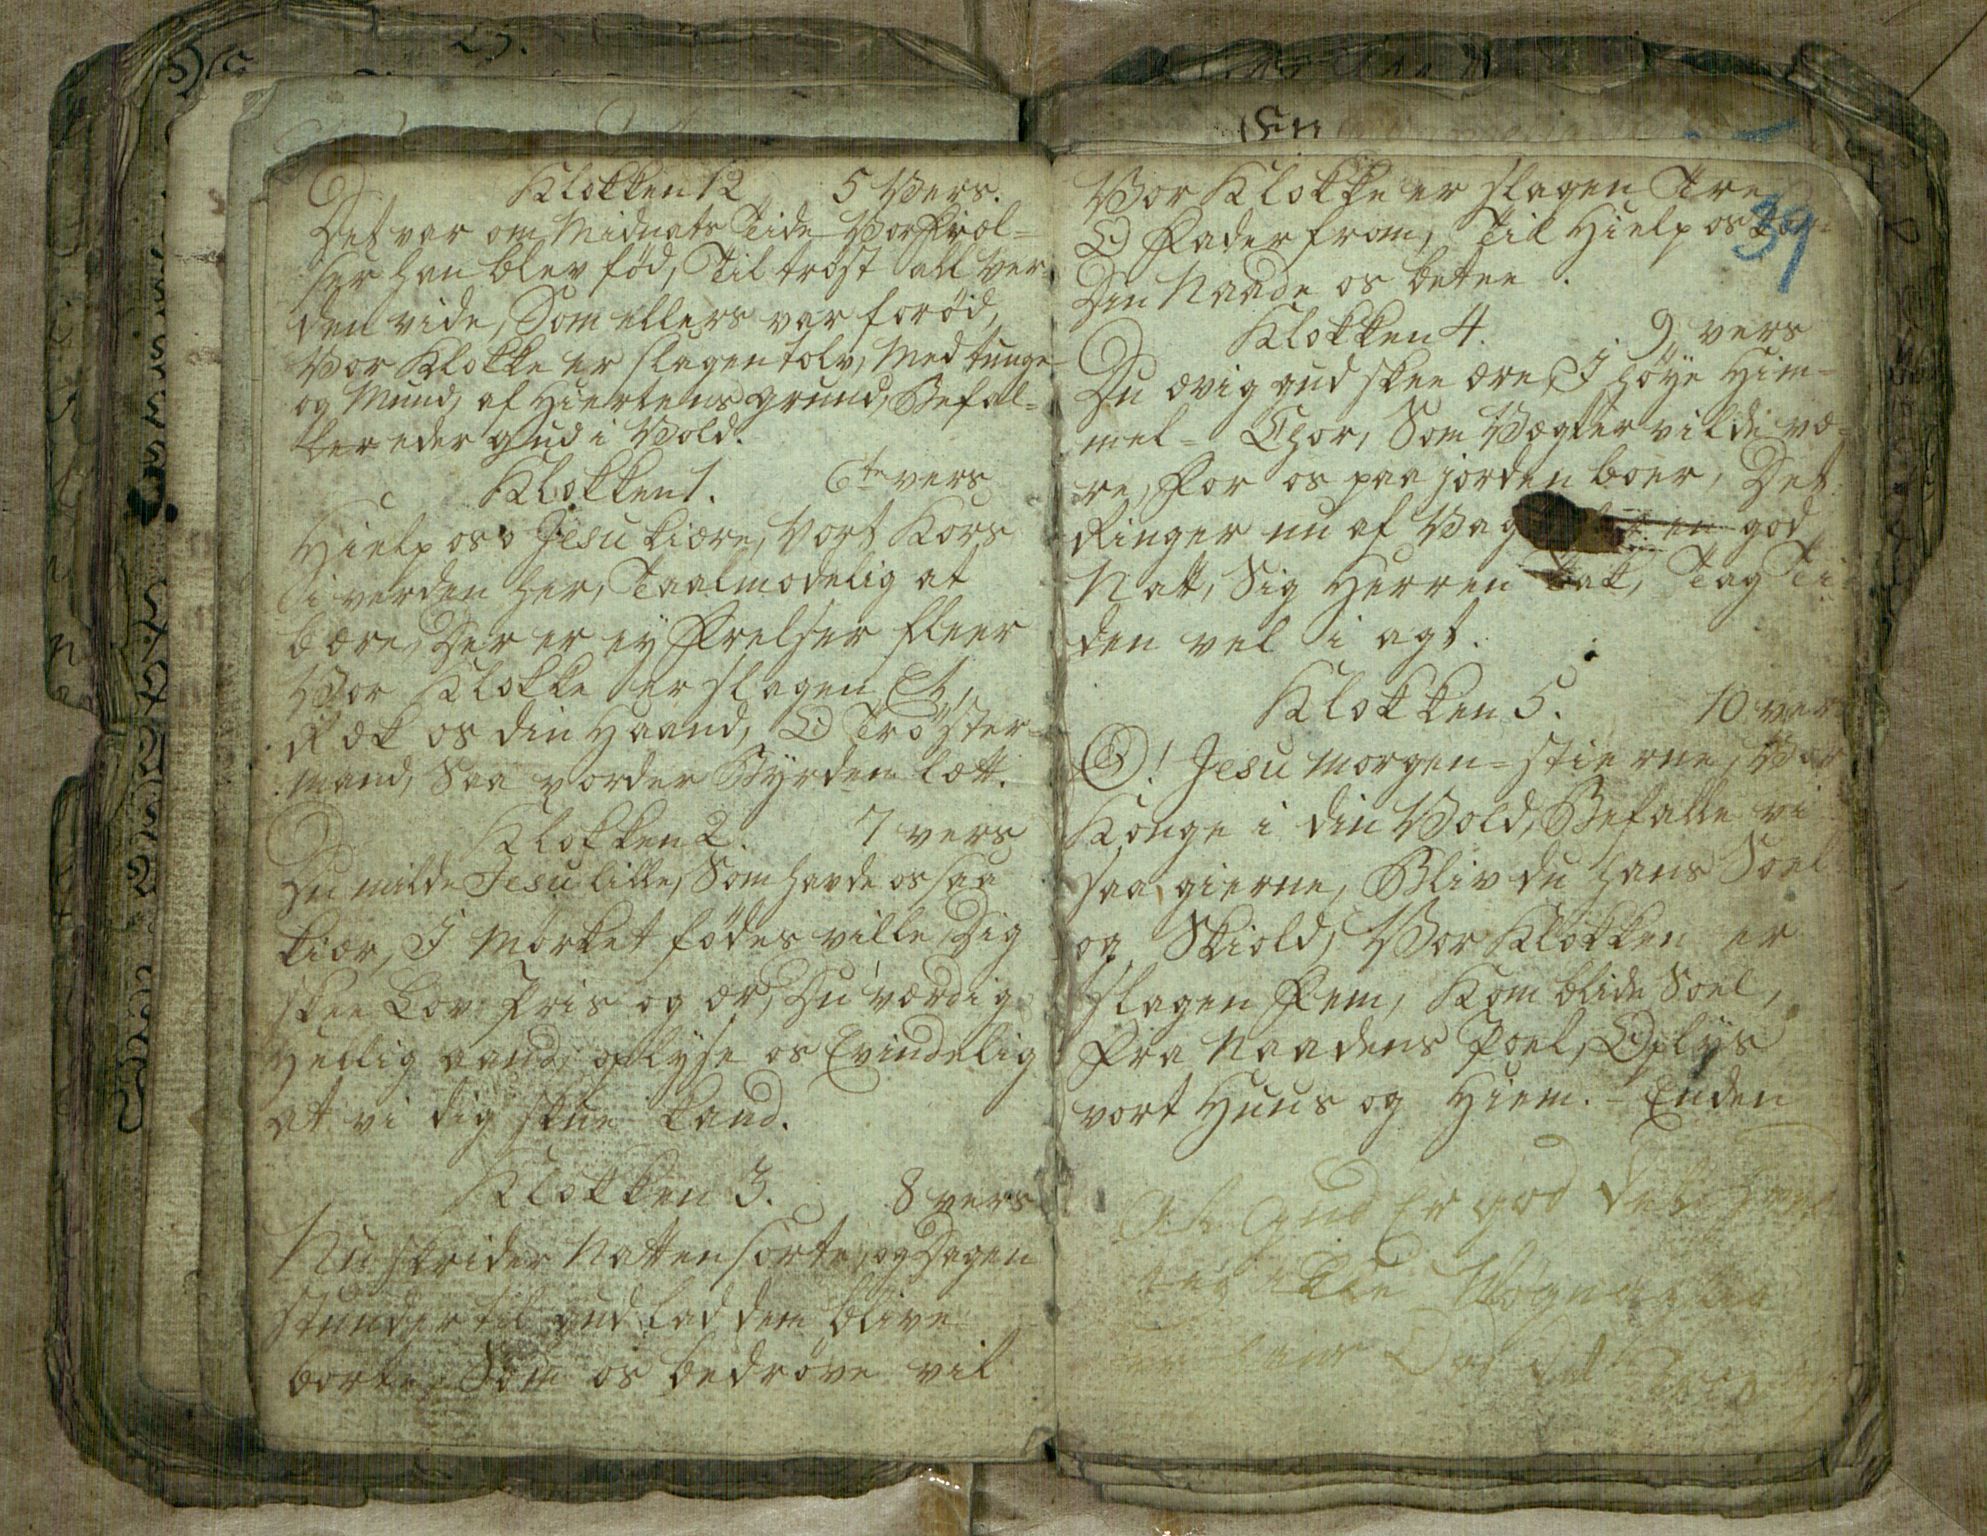 Klokken 12 5 Vers.
Det var om Midnats Tide Vor Frel=
ser han blev fød, Til trøst all Ver=
den vide, Som ellers var forød,
Vor Klokke er slagen tolv, Med tunge
og Mund, af Hiertens grund, Befal=
ler eder gud i Vold.
Klokken 1. 6te vers
Hielp os o Jesu kiære, Vort Kors
i verden her, Taalmodelig at
bære, Der er ey Frelser fleer
Vor Klokke er slagen Et,
Ræk os din Haand, O Trøster=
mand, Saa vorder Byrden læt.
Klokken 2. 7 vers
Du milde Jesu lille, Som havde os saa
kiær, I Mørket fødes ville, Dig
skee Lov Priis og ær, Du værdig
Hellig aand, oplyse os Evindelig
at vi dig skue kand.
Klokken 3. 8 vers
Nu skrider Natten sorte, og Dagen
stunder til, gud lad dem blive
borte, Som os bedrøve vil
Vor Klokke er slagen Tre
O Fader from, Til Hielp os kom
Din Naade os betee.
39
Klokken 4. 9 vers
Du ævig gud skee ære, I høye Him=
mel= Chor, Som Vægter vilde væ=
re, For os paa jorden boer, Det
Ringer nu af Vag en god
Natt, Sig Herren Tak, Tag Ti
den vel i agt.
Klokken 5. 10 vers
O! Jesu morgen=stierne, Vor
Konge i din Vold, Befalle vi
saa gierne, Bliv du hans Soel
og Skiold, Vor Klokken er
slagen Fem, Kom blide Soel,
Fra Naadens Poel, Oplys
vort Huus og Hiem. - Enden
Gud Er god